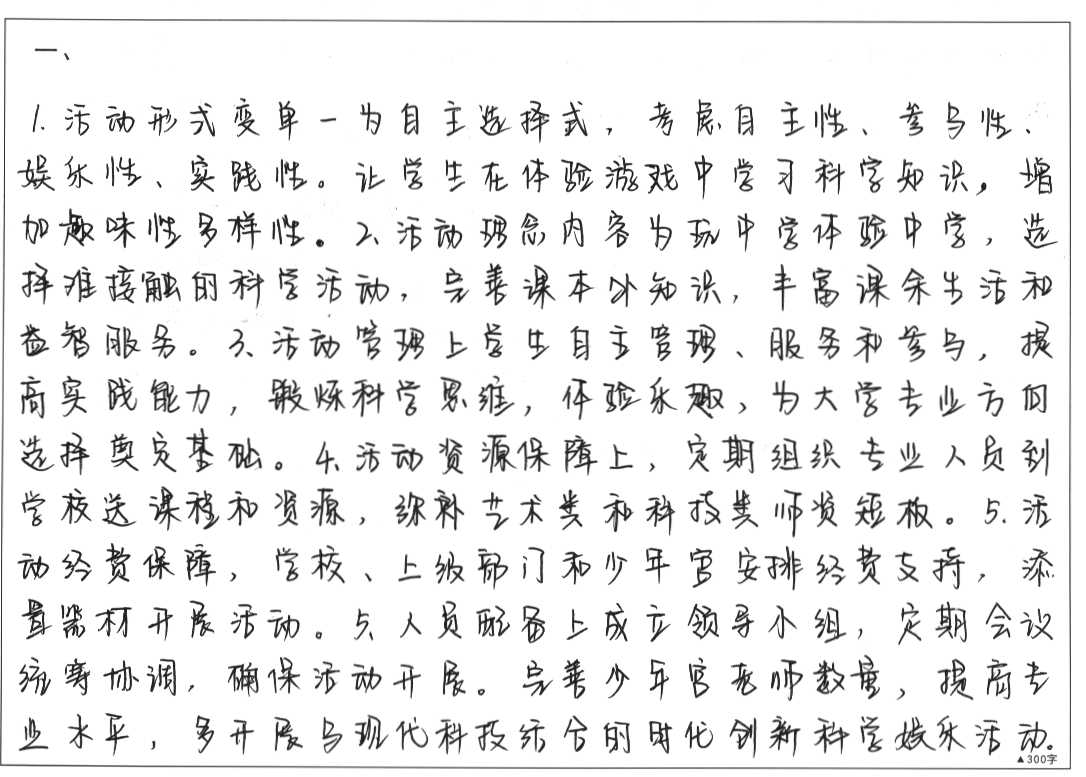 一、
1.活动形式变单一为自主选择式，考虑自主性、参与性、
娱乐性、实践性。让学生在体验游戏中学习科学知识，增
加趣味性多样性。2、活动理念内容为玩中学体验中学，选
择难接触的科学活动，完善课本外知识，丰富课余生活和
益智服务。3、活动管理上学生自主管理、服务和参与，提
高实践能力，锻炼科学思维，体验乐趣，为大学专业方向
选择奠定基础。4、活动资源保障上，定期组织专业人员到
学校送课程和资源，弥补艺术类和科技类师资短板。5.活
动经费保障，学校、上级部门和少年宫安排经费支持，添
置器材开展活动。5、人员配备上成立领导小组，定期会议
统筹协调，确保活动开展。完善少年宫老师数量，提高专
业水平，多开展与现代科技结合的时代创新科学娱乐活动。
▲300字